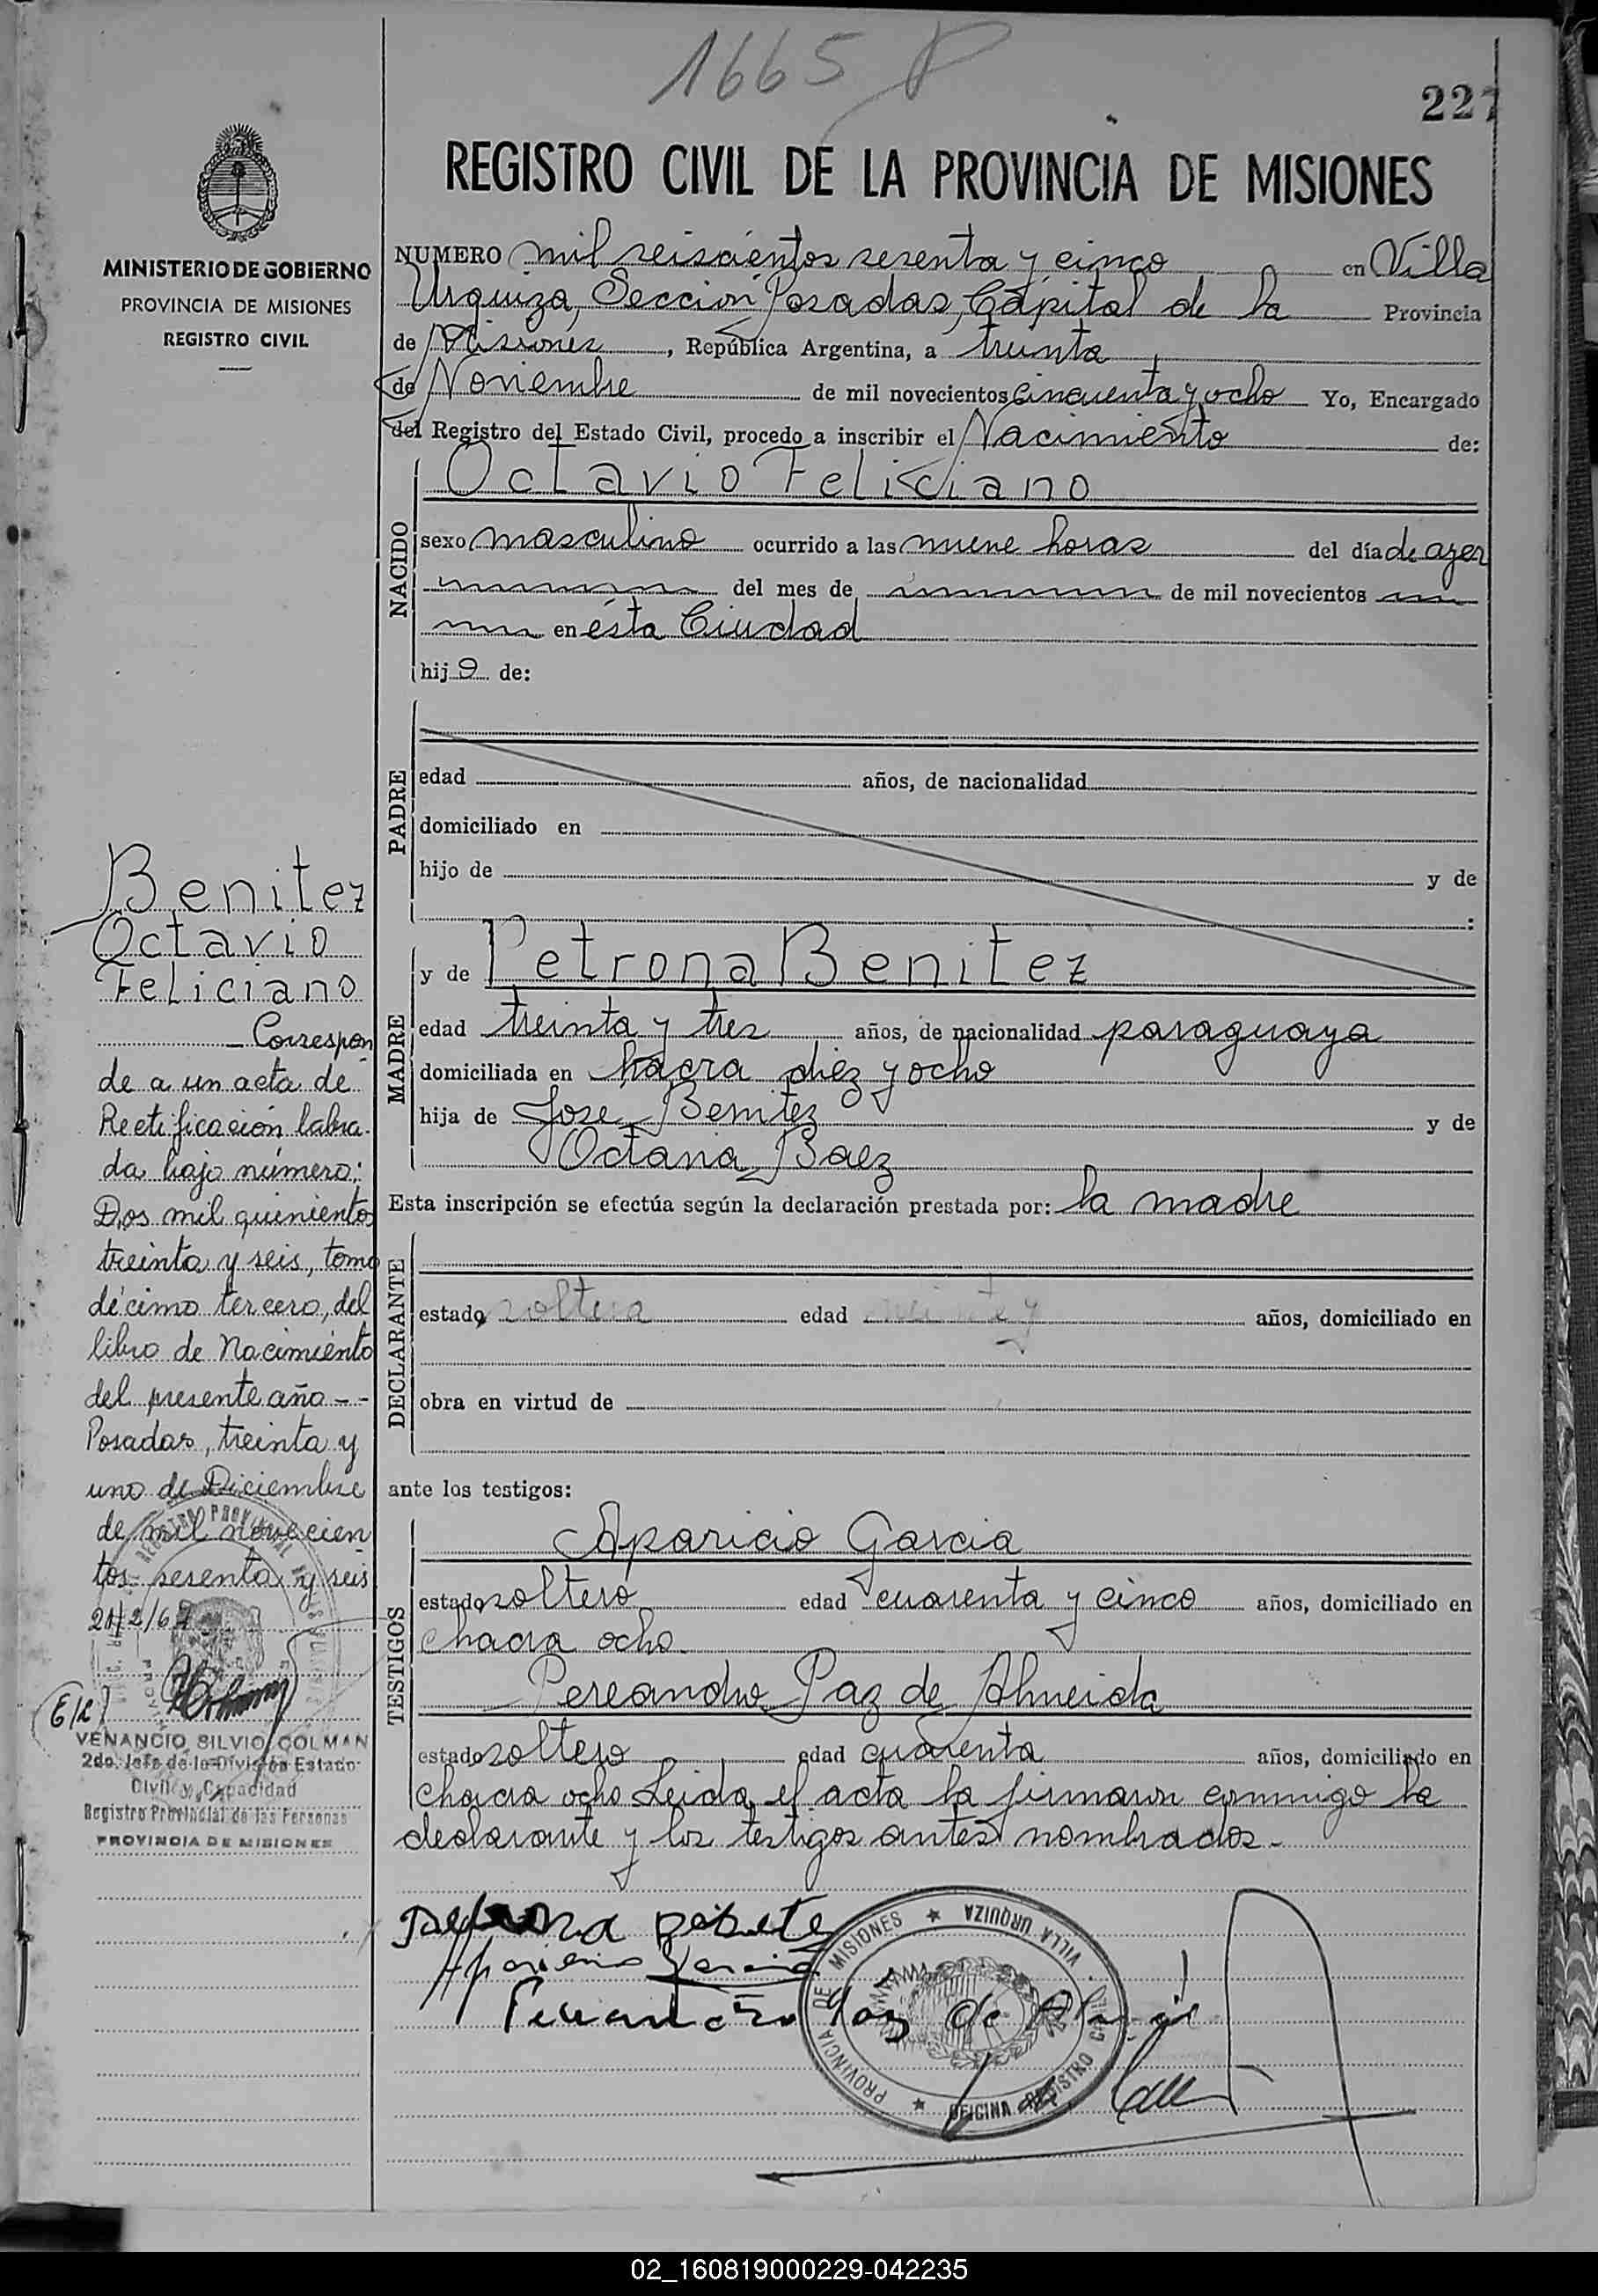 1665
227
REGISTRO CIVIL DE LA PROVINCIA DE MISIONES
MINISTERIO DE GOBIERNO
PROVINCIA DE MISIONES
REGISTRO CIVIL
NUMERO mil seiscientos sesenta y cinco en Villa
Urquiza, Sección Posadas, Cápital de la Provincia
de Misiones, República Argentina, a treinta
de Noviembre de mil novecientos cincuenta y ocho Yo, Encargado
del Registro del Estado Civil, procedo a inscribir el Nacimiento de:
NACIDO
Octavio Feliciano
sexo masculino ocurrido a las nueve horas del día de ayer
del mes de de mil novecientos
en ésta Ciudad
hijo de:
PADRE
edad años, de nacionalidad
domiciliado en
hijo de y de
:
MADRE
y de Petrona Benitez
edad treinta y tres años, de nacionalidad paraguaya
domiciliada en chacra diez y ocho
hija de Jose Benitez y de
Octavia Baez
Esta inscripción se efectúa según la declaración prestada por: la madre
DECLARANTE
estado soltera edad años, domiciliado en
obra en virtud de
ante los testigos:
TESTIGOS
Aparicio Garcia
estado soltero edad cuarenta y cinco años, domiciliado en
chacra ocho
Pereandro Paz de Almeida
estado soltero edad cuarenta años, domiciliado en
chacra ocho Leida el acta la firmaron conmigo la
declarante y los testigos antes nombrados.-
Aparicio Garcia
Paz de
PROVINCIA DE MISIONES ★ VILLA URQUIZA
OFICINA REGISTRO CIVIL
Benitez
Octavio
Feliciano
Correspon
de a un acta de
Rectificación labra-
da bajo número:
Dos mil quinientos
treinta y seis, tomo
décimo tercero, del
libro de Nacimiento
del presente año - -
Posadas, treinta y
uno de Diciembre
de mil novecien
tos sesenta y seis
VENANCIO SILVIO COLMAN
2do. Jefe de la División Estado
Civil y Capacidad
Registro Provincial de las Personas
PROVINCIA DE MISIONES
02_160819000229-042235